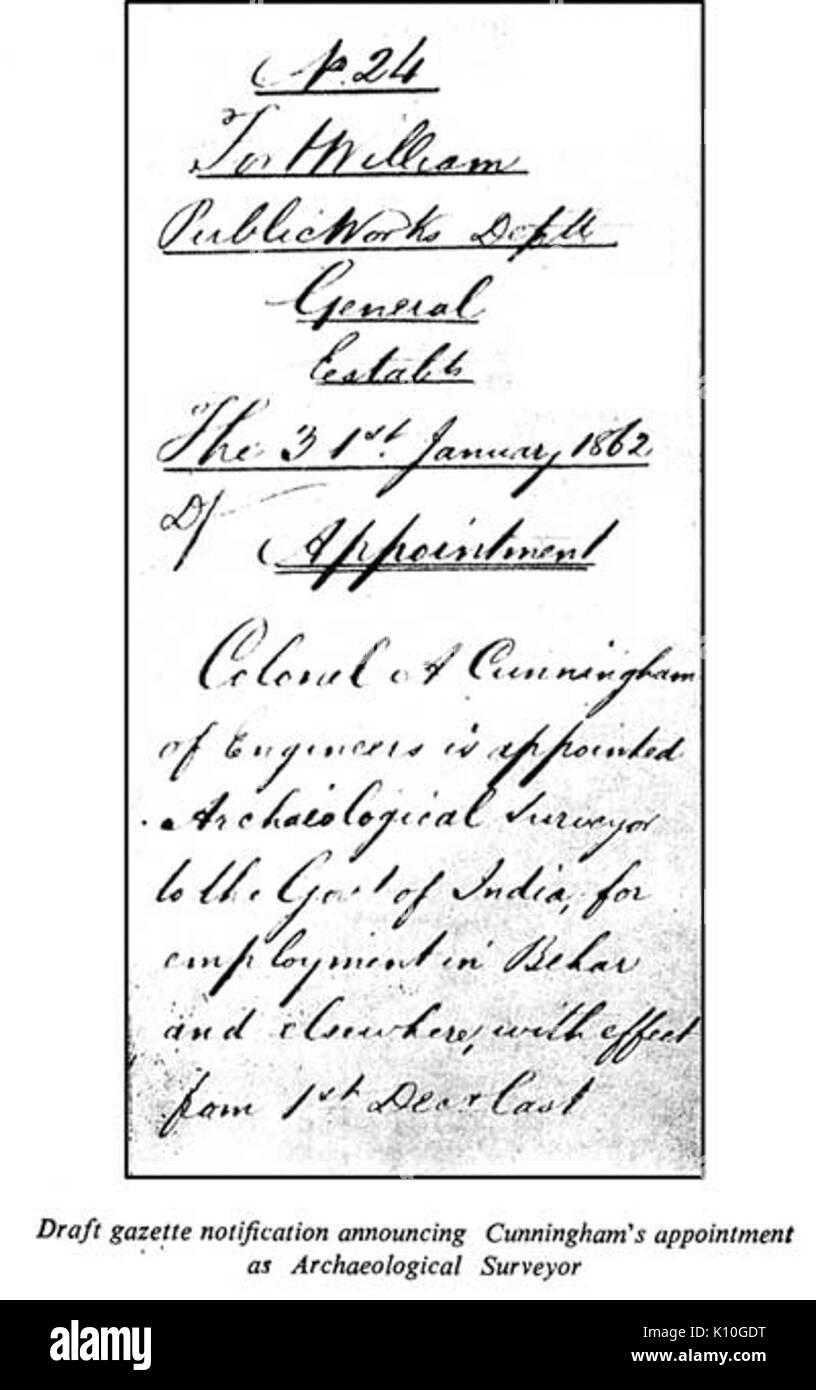 No. 24
Fort William
Public Works Deptt
General
Establt
The 31st. January, 1862
D/
Appointment
Colonel A Cunningham
of Engineers is appointed
Archaeological Surveyor
to the Govt of India, for
employment in Behar
and elsewhere, with effect
from 1st Decr last
Draft gazette notification announcing Cunningham's appointment
as Archaeological Surveyor
alamy
alamy
Image ID: K10GDT
www.alamy.com